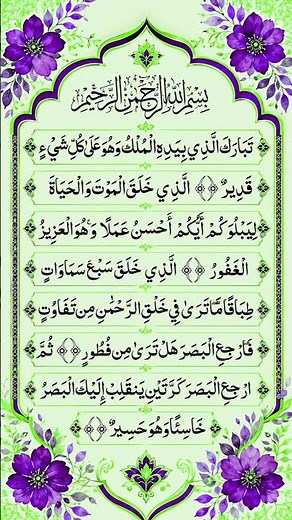 بسم الله الرحمن الرحيم
تَبَارَكَ الَّذِي بِيَدِهِ الْمُلْكُ وَهُوَ عَلَىٰ كُلِّ شَيْءٍ
قَدِيرٌ ﴿﴾ الَّذِي خَلَقَ الْمَوْتَ وَالْحَيَاةَ
لِيَبْلُوَكُمْ أَيُّكُمْ أَحْسَنُ عَمَلًا وَهُوَ الْعَزِيزُ
الْغَفُورُ ﴿﴾ الَّذِي خَلَقَ سَبْعَ سَمَاوَاتٍ
طِبَاقًا مَّا تَرَىٰ فِي خَلْقِ الرَّحْمَٰنِ مِن تَفَاوُتٍ
فَارْجِعِ الْبَصَرَ هَلْ تَرَىٰ مِن فُطُورٍ ﴿﴾ ثُمَّ
ارْجِعِ الْبَصَرَ كَرَّتَيْنِ يَنقَلِبْ إِلَيْكَ الْبَصَرُ
خَاسِئًا وَهُوَ حَسِيرٌ ﴿﴾